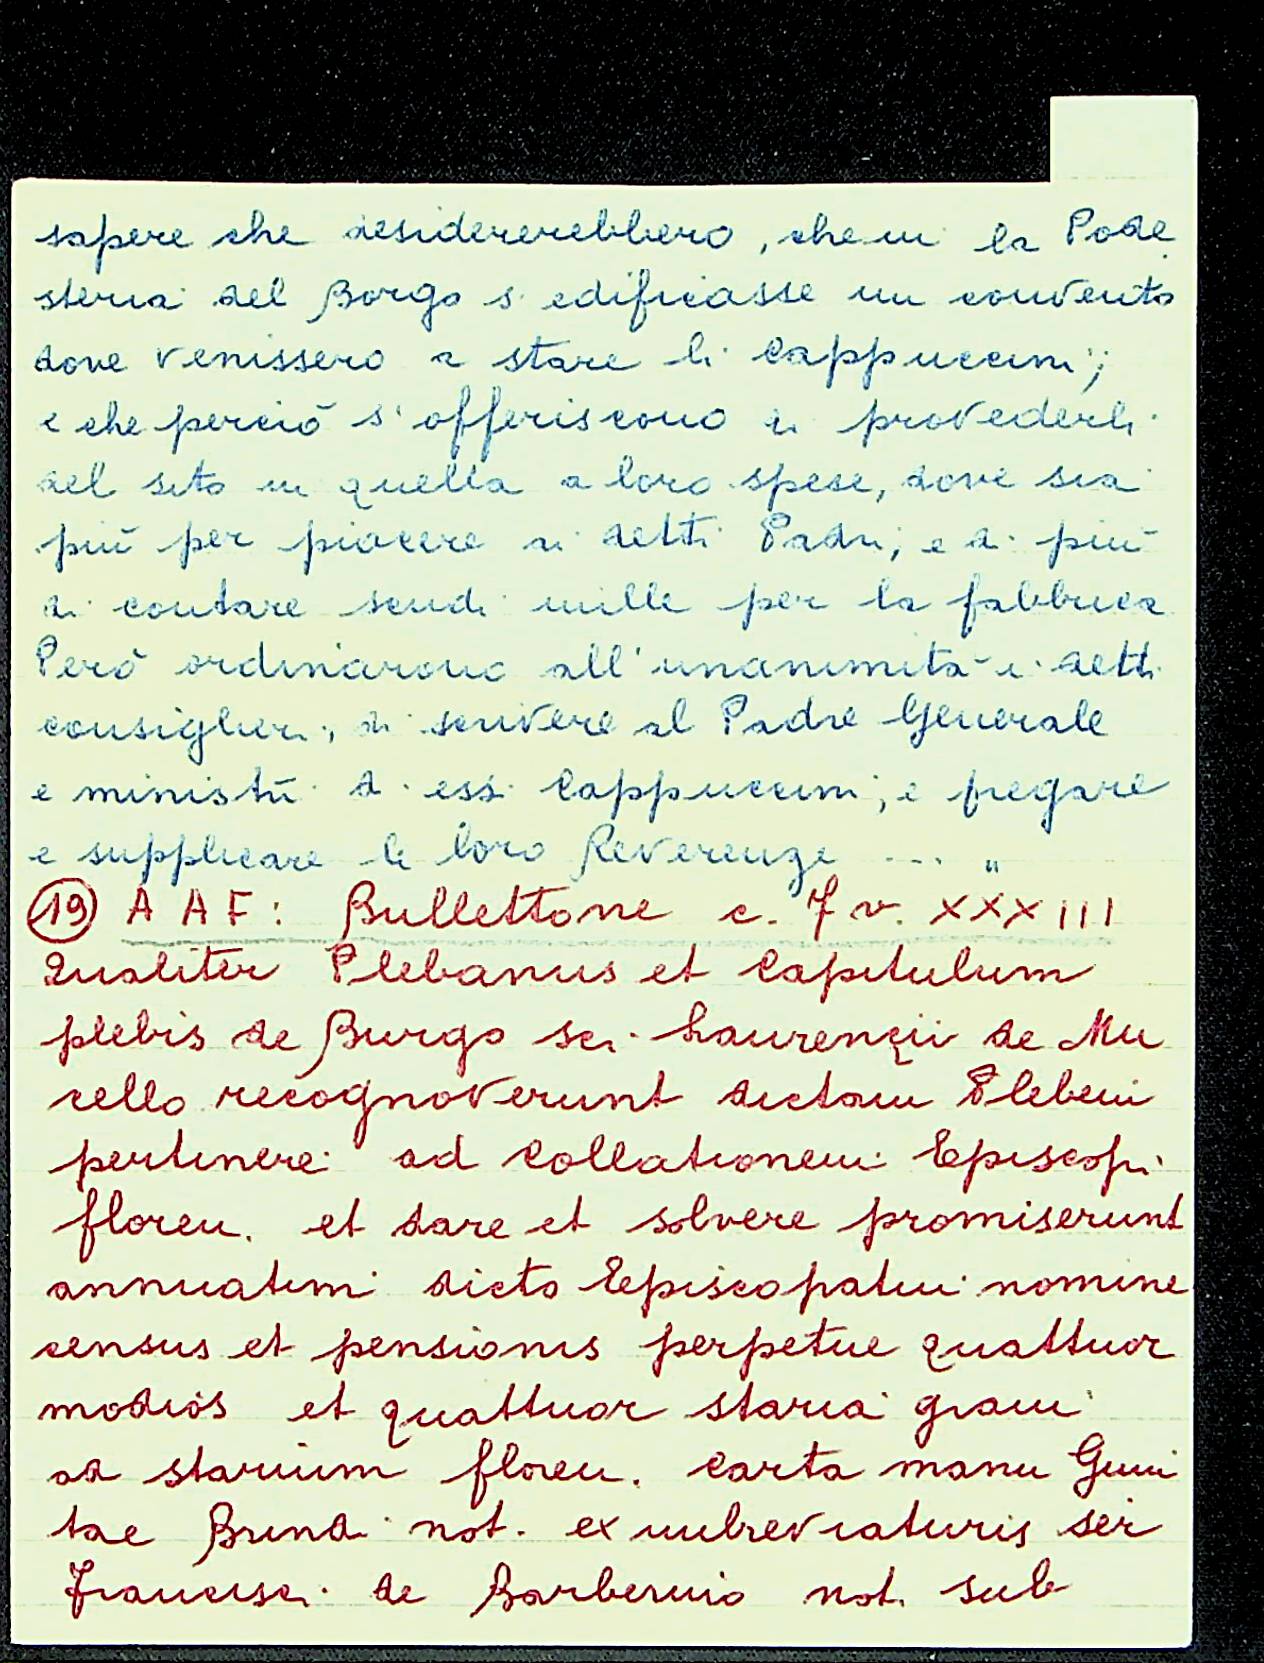 sapere che desidererebbero, che in la Pode
steria del Borgo s'edificasse un convento
dove venissero a stare li Cappuccini;
e che perciò s'offeriscono di provederli
del sito in quella a loro spese, dove sia
più per piacere ai detti Padri; e di più
di contare scudi mille per la fabbrica
Però ordinarono all'unanimità i detti
consiglieri, di scrivere al Padre Generale
e ministri di essi Cappuccini, e pregare
e supplicare le loro Reverenze ... "
(19) AAF: Bullettone c. 7 v. XXXIII
Qualiter Plebanus et Capitulum
plebis de Burgo sci. Laurenzii de Mu
cello recognoverunt dictam Plebem
pertinere ad collationem Episcopi
floren. et dare et solvere promiserunt
annuatim dicto Episcopatui nomine
census et pensionis perpetue quattuor
modios et quattuor staria grani
ad starium floren. carta manu
tae not. ex imbreviaturis ser
Francisci de Barberino not. sub